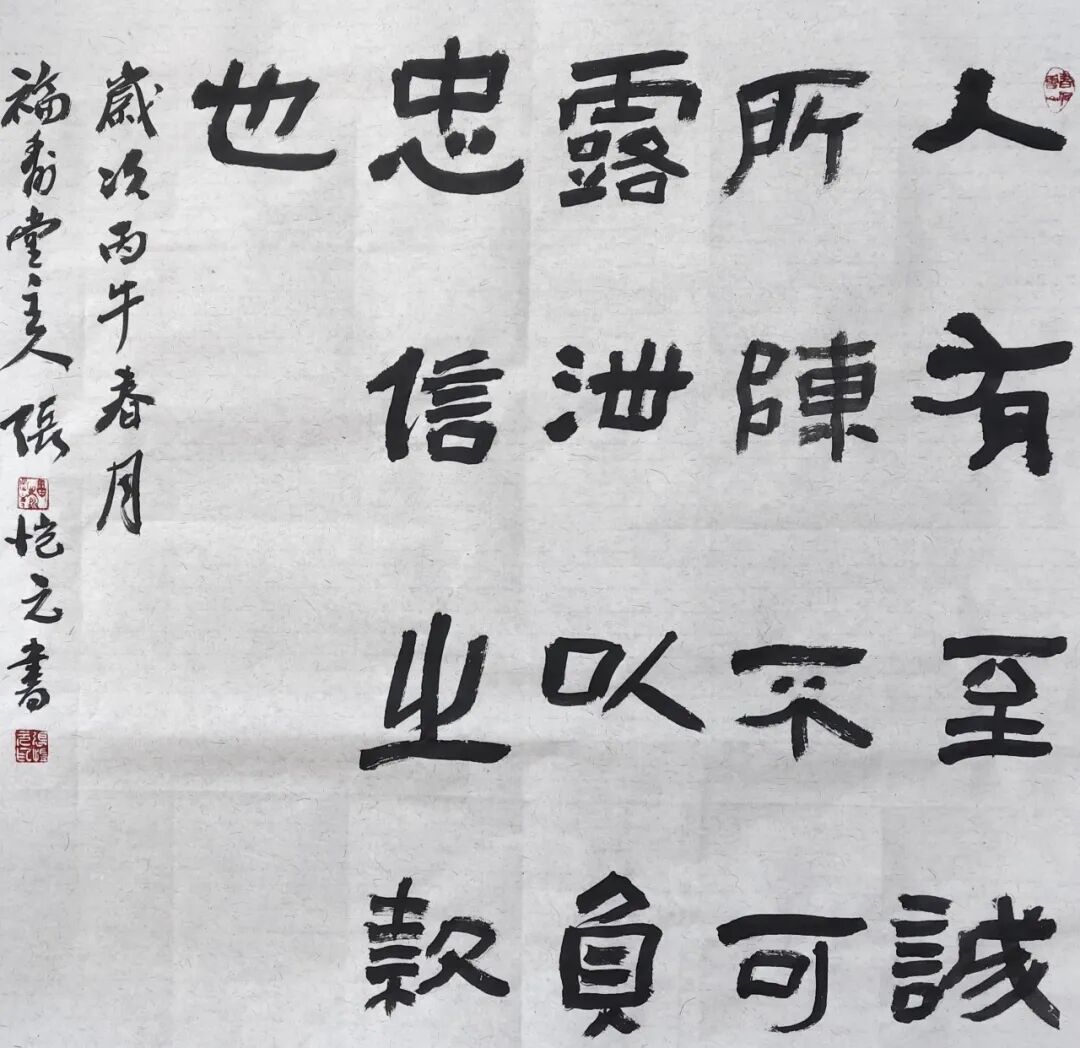 人有至誠
所陳不可
露泄以負
忠信之款
也
歲次丙午春月
福壽堂主人張愷元書